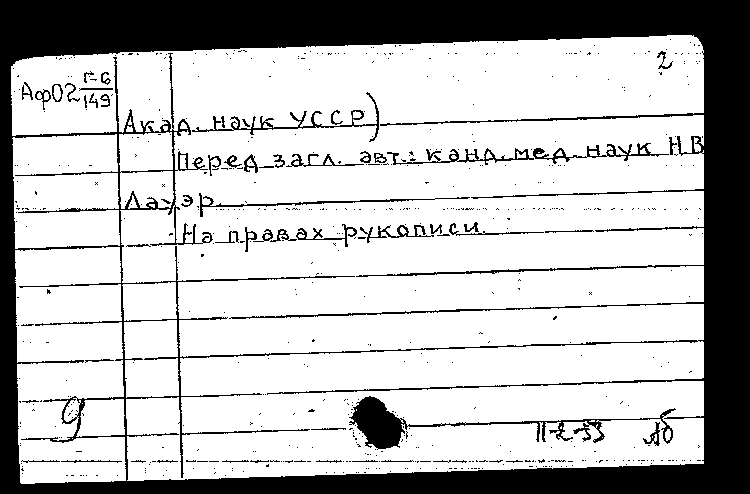 2
АфО2 Г-6/149
Акад. наук УССР)
Перед загл. авт.: канд. мед. наук Н В
Лауэр.
На правах рукописи.
9
11-2-53 Аб